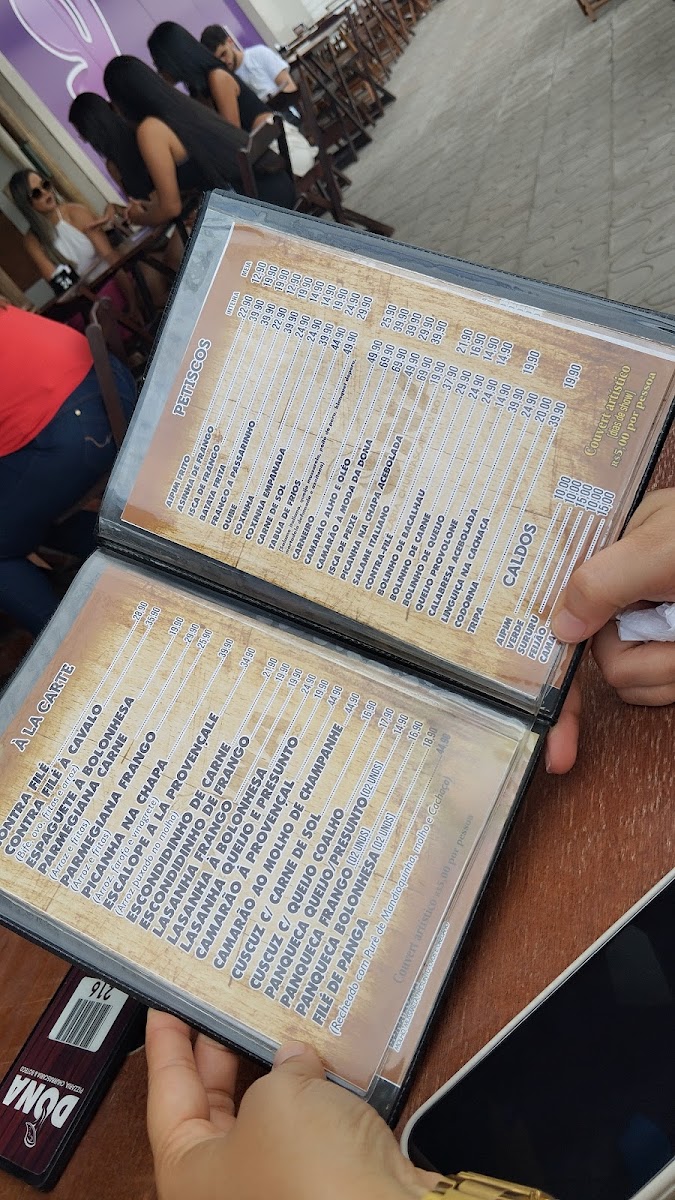 PETISCOS
INTEIRA MEIA
AIPIM FRITO 22.90 12.90
ASINHA DE FRANGO 39.90 19.90
ISCA DE FRANGO 39.90 19.90
BATATA FRITA 22.90 12.90
FRANGO A PASSARINHO 39.90 19.90
QUIBE 24.90 14.90
COXINHA 24.90 14.90
COXINHA EMPANADA 39.90 19.90
CARNE DE SOL 44.90 24.90
TABUA DE FRIOS 49.90 29.90
CARNEIRO 49.90 25.90
CAMARÃO ALHO E OLÉO 69.90 39.90
CAMARÃO A MODA DA DONA 69.90 39.90
ISCA DE PEIXE 49.90 25.90
PICANHA NA CHAPA ACEBOLADA 69.90 39.90
SALAME ITALIANO 19.90
CONTRA-FILÉ 37.90 21.90
BOLINHO DE BACALHAU 29.90 16.90
BOLINHO DE CARNE 24.90 14.90
BOLINHO DE QUEIJO 24.90 14.90
QUEIJO PROVOLONE
CALABRESA ACEBOLADA
LINGUIÇA NA CACHAÇA
CODORNA
TRIPA 39.90 19.90
CALDOS
AIPIM 10.00
VERDE 10.00
SURURU 15.00
FEIJÃO 10.00
15.00
Couvert artístico
(dias de show)
R$5,00 por pessoa
À LA CARTE
CONTRA FILÉ 28.90
CONTRA FILÉ À CAVALO 35.90
(Filé, ovo, fritas e arroz)
ESPAGUETE À BOLONHESA 19.90
PARMEGIANA CARNE 29.90
(Arroz e fritas)
PARMEGIANA FRANGO 25.90
(Arroz e fritas)
PICANHA NA CHAPA 39.90
(Arroz, farofa e vinagrete)
ESCALOPE A LA PROVENÇALE 34.90
(Arroz puxado no molho)
ESCONDIDINHO DE CARNE 21.90
ESCONDIDINHO DE FRANGO 19.90
LASANHA FRANGO 19.90
LASANHA À BOLONHESA 24.90
LASANHA QUEIJO E PRESUNTO 19.90
CAMARÃO À PROVENÇAL 44.90
CAMARÃO AO MOLHO DE CHAMPANHE 44.90
CUSCUZ C/ CARNE DE SOL 16.90
CUSCUZ C/ QUEIJO COALHO 17.90
PANQUECA QUEIJO/PRESUNTO (02 UNDS) 14.90
PANQUECA FRANGO (02 UNDS) 16.90
PANQUECA BOLONHESA (02 UNDS) 18.90
FILÉ DE PANGA 44.90
(Recheado com Purê de Mandioquinha, molho e Cachaça)
Couvert artístico R$5,00 por pessoa
216
DONA
PIZZARIA, CHURRASCARIA & BOTECO